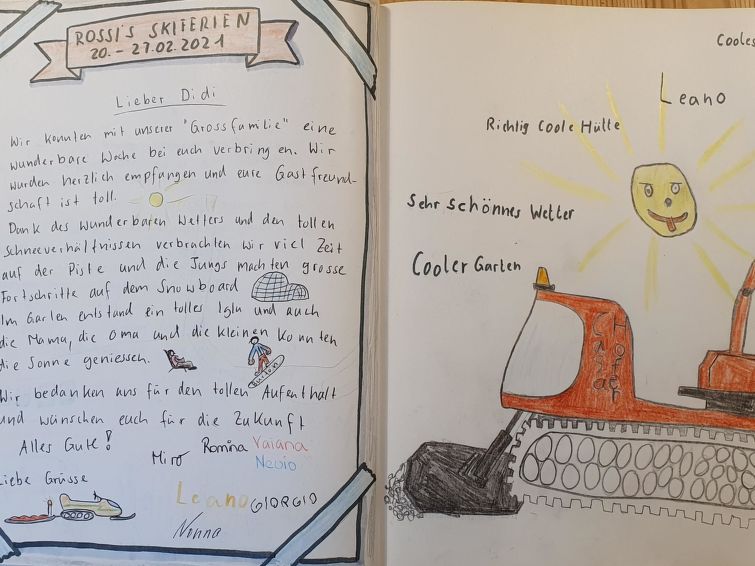 ROSSI'S SKIFERIEN
20. - 27.02.2021
Lieber Didi
Wir konnten mit unserer "Grossfamilie" eine
wunderbare Woche bei euch verbringen. Wir
wurden herzlich empfangen und eure Gastfreund-
schaft ist toll.
Dank des wunderbaren Wetters und den tollen
Schneeverhältnissen verbrachten wir viel Zeit
auf der Piste und die Jungs machten grosse
Fortschritte auf dem Snowboard
Im Garten entstand ein tolles Iglu und auch
die Mama, die Oma und die kleinen konnten
die Sonne geniessen.
Burton
Wir bedanken uns für den tollen Aufenthalt
und wünschen euch für die Zukunft
Alles Gute!
Miro Romina Vaiana
Nevio
Liebe Grüsse
Leano GIORGIO
Nonna
Cooles
Leano
Richtig Coole Hütte
Sehr schönnes Wetter
Cooler Garten
Hofer